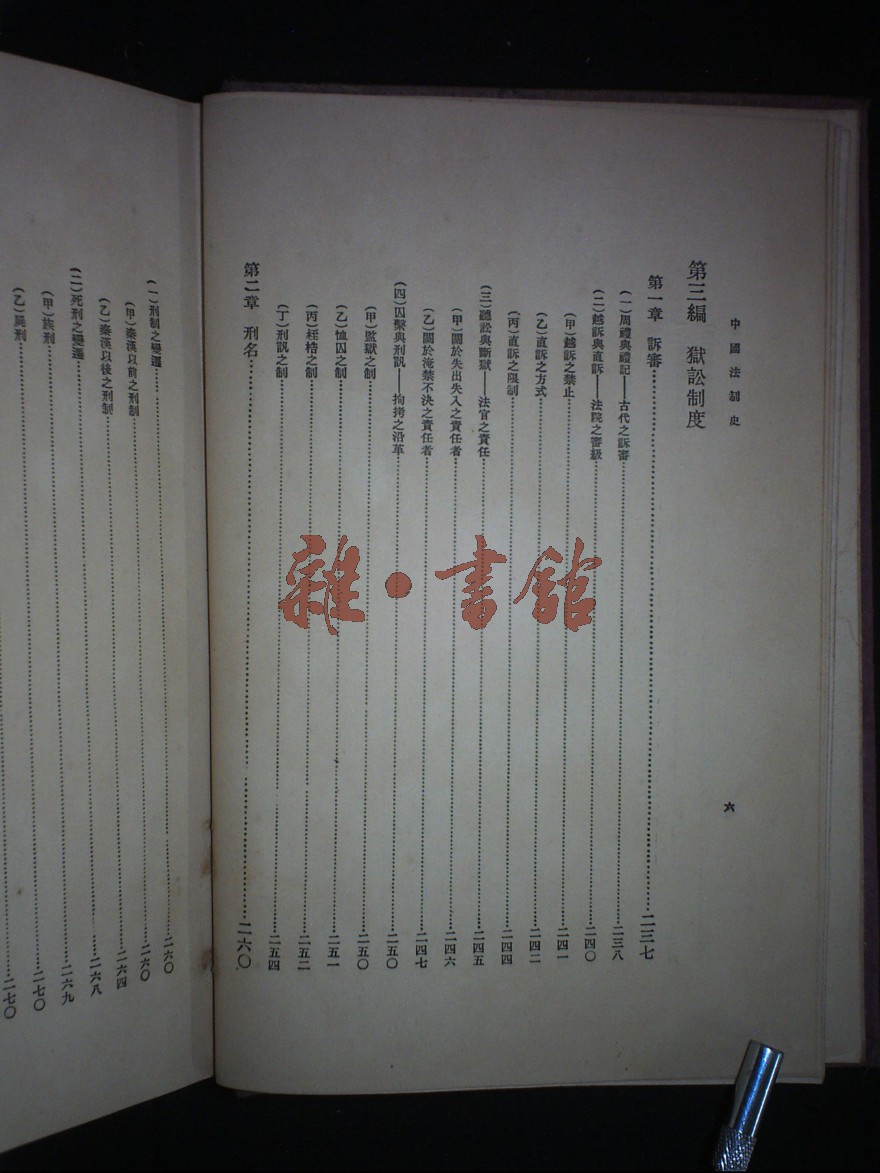 中國法制史
六
第三編 獄訟制度
第一章 訴審……二三七
(一)周禮與禮記——古代之訴審……二三八
(二)越訴與直訴——法院之審級……二四〇
(甲)越訴之禁止……二四一
(乙)直訴之方式……二四二
(丙)直訴之限制……二四四
(三)聽訟與斷獄——法官之責任……二四五
(甲)關於失出失入之責任者……二四六
(乙)關於淹禁不決之責任者……二四七
(四)囚繫與刑訊——拘拷之沿革……二五〇
(甲)監獄之制……二五〇
(乙)恤囚之制……二五一
(丙)桎梏之制……二五二
(丁)刑訊之制……二五四
第二章 刑名……二六〇
(一)刑制之變遷……二六〇
(甲)秦漢以前之刑制……二六〇
(乙)秦漢以後之刑制……二六四
(二)死刑之變遷……二六八
(甲)族刑……二六九
二七〇
二七〇
雜·書館